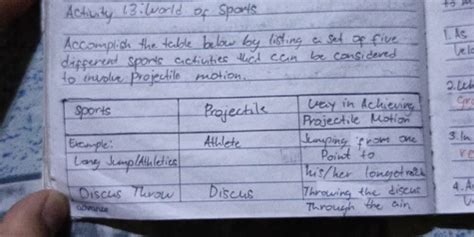 Activity 1.3: World of Sports
Accomplish the table below by listing a set of five
different sports activities that can be considered
to involve projectile motion.
Sports Projectile Way in Achieving
Projectile Motion
Example: Athlete Jumping from one
Long Jump/Athletics Point to
his/her longest
Discus Throw Discus Throwing the discus
Through the air
1. As
2.
3. In
4. A